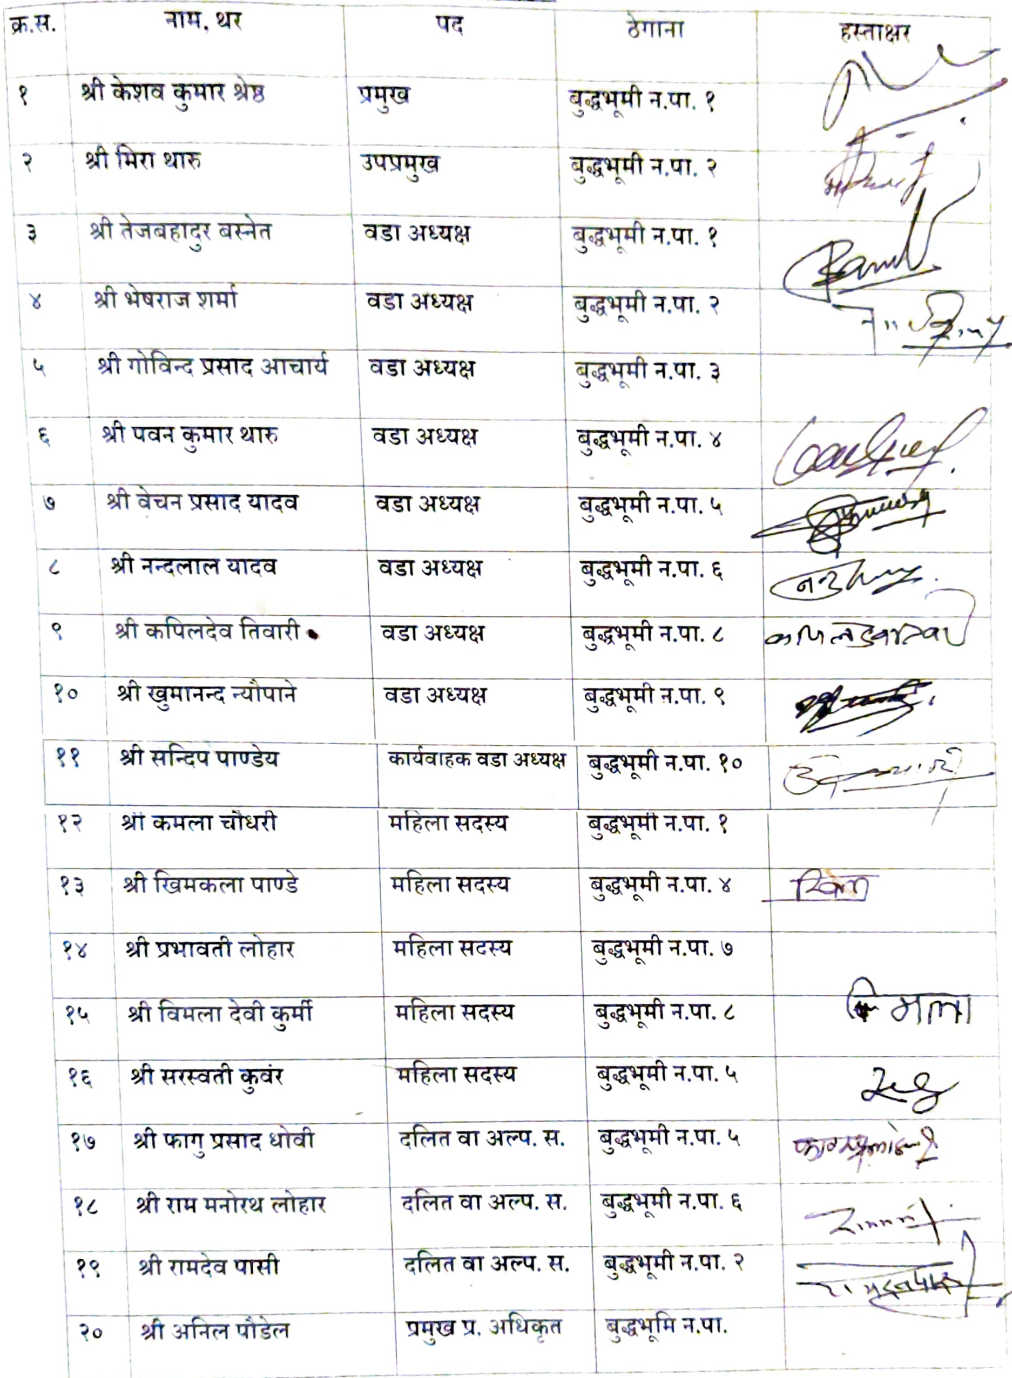 क्र.स. नाम, थर पद ठेगाना हस्ताक्षर
१ श्री केशव कुमार श्रेष्ठ प्रमुख बुद्धभूमी न.पा. १
२ श्री मिरा थारु उपप्रमुख बुद्धभूमी न.पा. २
३ श्री तेजबहादुर बस्नेत वडा अध्यक्ष बुद्धभूमी न.पा. १
४ श्री भेषराज शर्मा वडा अध्यक्ष बुद्धभूमी न.पा. २
५ श्री गोविन्द प्रसाद आचार्य वडा अध्यक्ष बुद्धभूमी न.पा. ३
६ श्री पवन कुमार थारु वडा अध्यक्ष बुद्धभूमी न.पा. ४
७ श्री वेचन प्रसाद यादव वडा अध्यक्ष बुद्धभूमी न.पा. ५
८ श्री नन्दलाल यादव वडा अध्यक्ष बुद्धभूमी न.पा. ६
९ श्री कपिलदेव तिवारी वडा अध्यक्ष बुद्धभूमी न.पा. ८
१० श्री खुमानन्द न्यौपाने वडा अध्यक्ष बुद्धभूमी न.पा. ९
११ श्री सन्दिप पाण्डेय कार्यवाहक वडा अध्यक्ष बुद्धभूमी न.पा. १०
१२ श्री कमला चौधरी महिला सदस्य बुद्धभूमी न.पा. १
१३ श्री खिमकला पाण्डे महिला सदस्य बुद्धभूमी न.पा. ४
१४ श्री प्रभावती लोहार महिला सदस्य बुद्धभूमी न.पा. ७
१५ श्री विमला देवी कुर्मी महिला सदस्य बुद्धभूमी न.पा. ८ विमला
१६ श्री सरस्वती कुवंर महिला सदस्य बुद्धभूमी न.पा. ५
१७ श्री फागु प्रसाद धोवी दलित वा अल्प. स. बुद्धभूमी न.पा. ५
१८ श्री राम मनोरथ लोहार दलित वा अल्प. स. बुद्धभूमी न.पा. ६
१९ श्री रामदेव पासी दलित वा अल्प. स. बुद्धभूमी न.पा. २
२० श्री अनिल पौडेल प्रमुख प्र. अधिकृत बुद्धभूमि न.पा.